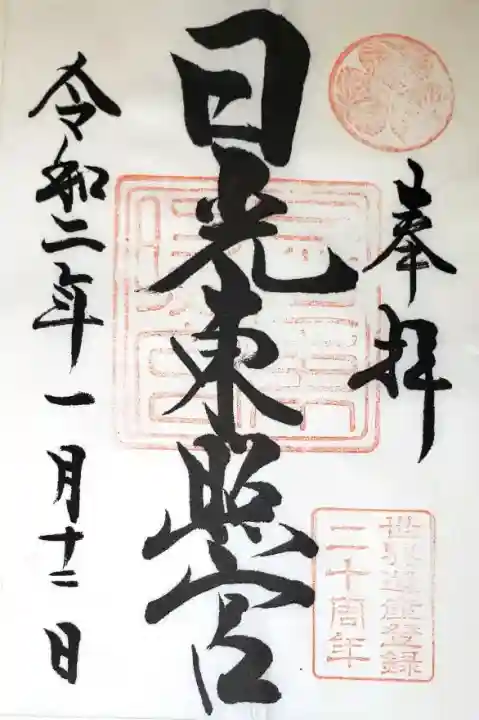 奉拝
世界遺産登録
二十周年
日光東照宮
令和二年一月十二日